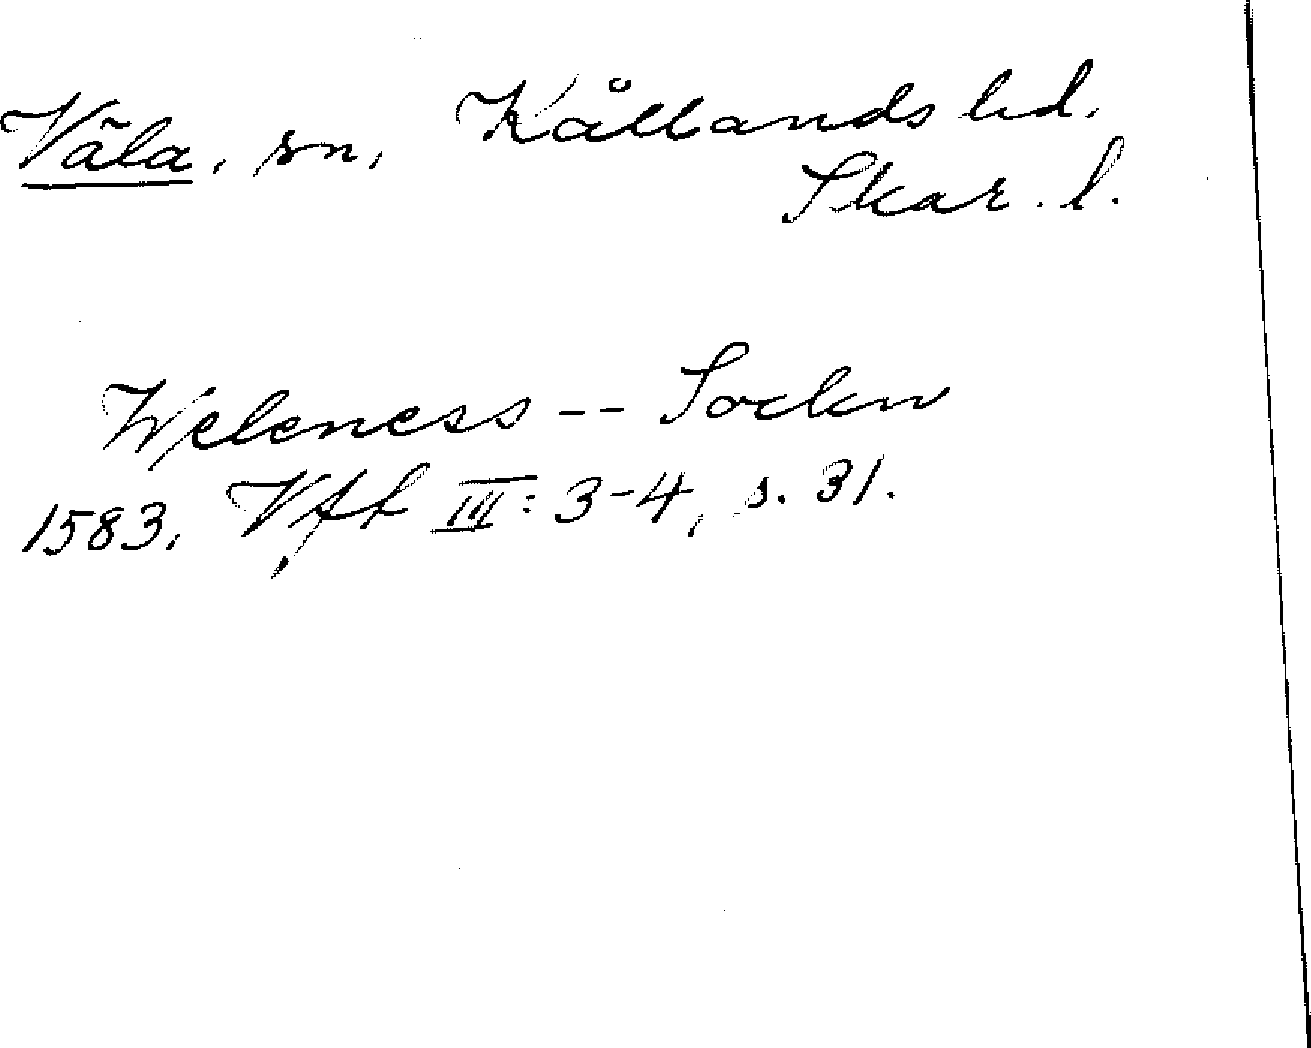 Väla, sn, Kållands hd.
Skar. l.
Weleness -- Sockn
1583, Vft III: 3-4, s. 31.